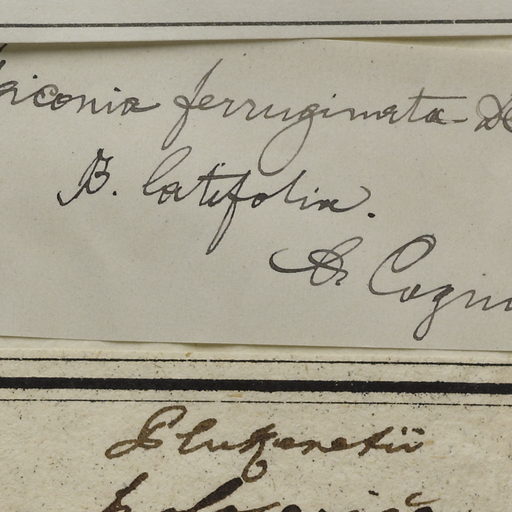 iconia ferruginata D
B. latifolia.
A. Cogni
Plukenetii